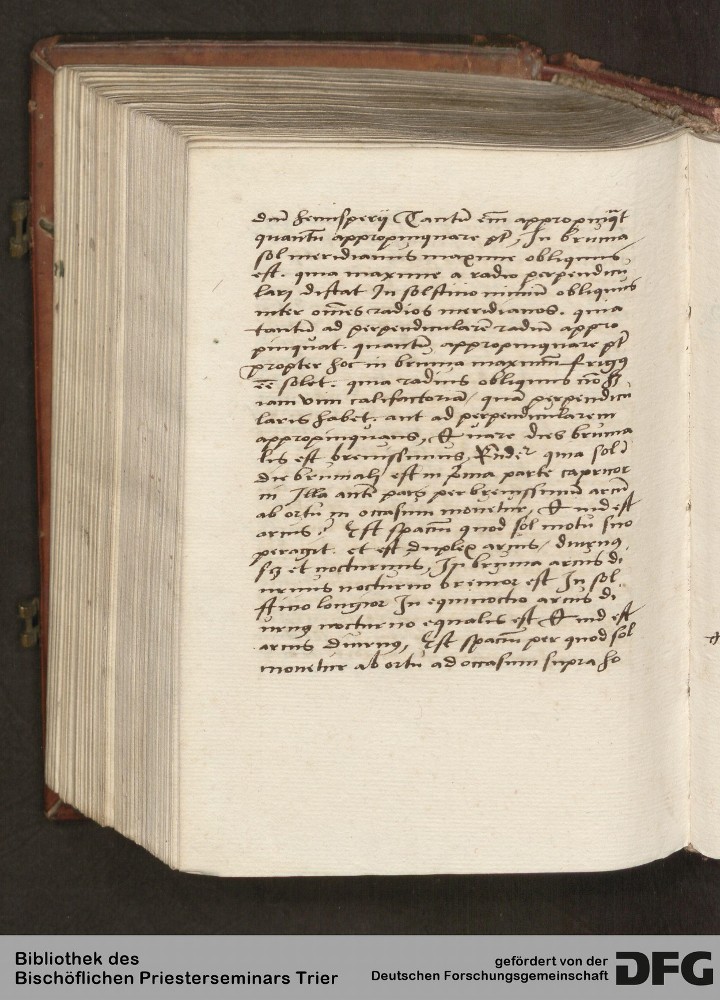 diū hemisperij Tantū em̄ appropinq̄t
quantū appropinquare pt, In bruma
sol meridianus maxime obliquus
est. quia maxime a radio perpendicu
lari distat In solstitio minimū obliquus
inter om̄es radios meridianos. quia
tantū ad perpendicularē radiū appro
pinquat. quantū appropinquare pt
propter hoc in bruma maximū frigus
eē solet. quia radius obliquus nō
tam vim calefactoriā quā perpendicu
laris habet. aut ad perpendicularem
appropinquans, Quare dies bruma
lis est breuissimus, Rnder quia sol
die brumali est in p̄ma parte capricor
ni Illa autē pars per breuissimū arcū
ab ortu in occasum mouetur, Quid est
arcus? Est spaciū quod sol motu suo
peragit. et est duplex arcus, diurnus
sz et nocturnus, In bruma arcus di
urnus nocturno breuior est In sol
stitio longior In equinoctio arcus di
urnus nocturno equalis est Quid est
arcus diurnus, Est spaciū per quod sol
mouetur ab ortu ad occasum supra ho
Bibliothek des
Bischöflichen Priesterseminars Trier
gefördert von der
Deutschen Forschungsgemeinschaft
DFG